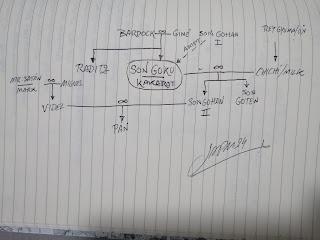 BARDOCK ∞ GINE SON GOHAN
I
ADOPT
RADITZ
SON GOKU
KAKAROT
CHICHI/MILK
MR. SATAN
MARK
∞
MIGUEL
∞
VIDEL
SON GOHAN
II
SON
GOTEN
∞
PAN